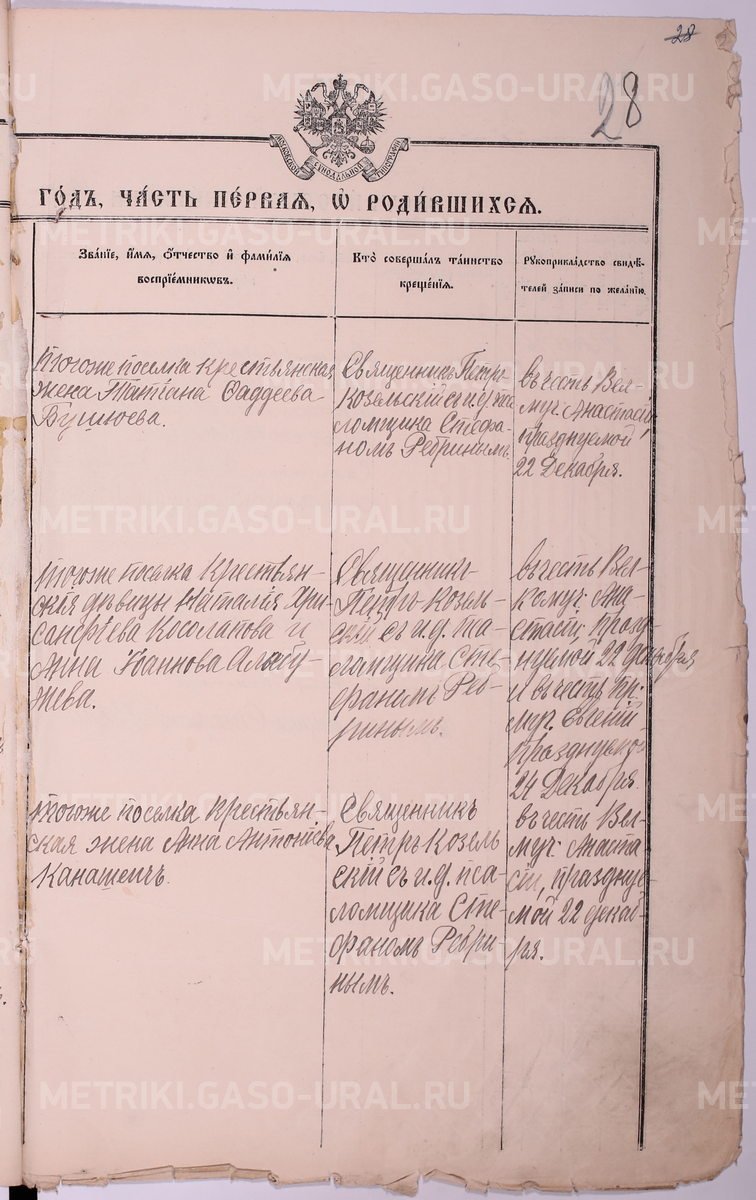 28
28
МОСКОВСКОЙ СѴНОДАЛЬНОЙ ТИПОГРАФІИ
ГО́ДЪ, ЧА́СТЬ ПЕ́РВАѦ, Ѽ РОДИ́ВШИХСѦ.
Зва́нїе, и҆́мѧ, ѻ҆́тчество и҆ фами́лїѧ
воспрїе́мникѡвъ.
Кто̀ соверша́лъ та́инство
креще́нїѧ.
Рꙋкоприкла́дство свидѣ́-
телей за́писи по жела́нїю.
тогоже поселка крестьянская
жена Татіана Фаддеева
Бушюева.
Священникъ Петръ
Козельскій съ и. д. пса
ломщика Стефа-
номъ Ребринымъ.
въ честь Вел-
муч. Анастасіи
празднуемой
22 Декабря.
тогоже поселка Крестьян-
скія дѣвицы Наталія Хри-
санфѣева Косолапова и
Анна Іоаннова Алабу-
жева.
Священникъ
Петръ Козель-
скій съ и. д. пса-
ломщика Сте-
фаномъ Реб-
ринымъ.
въ честь Вел-
комуч. Ана-
стасіи, празд-
нуемой 22 декабря
и въ честь Пр.
муч. Евгеніи
празднуемой
24 Декабря.
тогоже поселка крестьян-
ская жена Анна Антоніева
Канашевичъ.
Священникъ
Петръ Козель
скій съ и. д. пса-
ломщика Сте
фаномъ Ребри-
нымъ.
въ честь Вел-
муч. Анаста
сіи, праздnуе-
мой 22 декаб-
ря.
METRIKI.GASO-URAL.RU